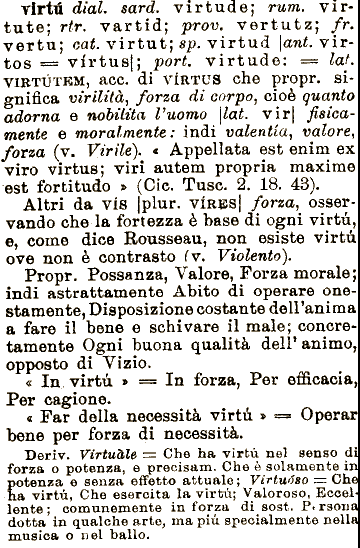 virtú dial. sard. virtude; rum. vir-
tute; rtr. vartid; prov. vertutz; fr.
vertu; cat. virtut; sp. virtud |ant. vir-
tos = vírtus|; port. virtude: = lat.
VIRTÚTEM, acc. di VÍRTUS che propr. si-
gnifica virilità, forza di corpo, cioè quanto
adorna e nobilita l'uomo |lat. vir| fisica-
mente e moralmente: indi valentía, valore,
forza (v. Virile). « Appellata est enim ex
viro virtus; viri autem propria maxime
est fortitudo » (Cic. Tusc. 2. 18. 43).
Altri da vis |plur. VÍRES| forza, osser-
vando che la fortezza è base di ogni virtú,
e, come dice Rousseau, non esiste virtú
ove non è contrasto (v. Violento).
Propr. Possanza, Valore, Forza morale;
indi astrattamente Abito di operare one-
stamente, Disposizione costante dell'anima
a fare il bene e schivare il male; concre-
tamente Ogni buona qualità dell' animo,
opposto di Vizio.
« In virtú » = In forza, Per efficacia,
Per cagione.
« Far della necessità virtú » = Operar
bene per forza di necessità.
Deriv. Virtuàle = Che ha virtú nel senso di
forza o potenza, e precisam. Che è solamente in
potenza e senza effetto attuale; Virtuóso = Che
ha virtú, Che esercita la virtú; Valoroso, Eccel-
lente; comunemente in forza di sost. Persona
dotta in qualche arte, ma piú specialmente nella
musica o nel ballo.